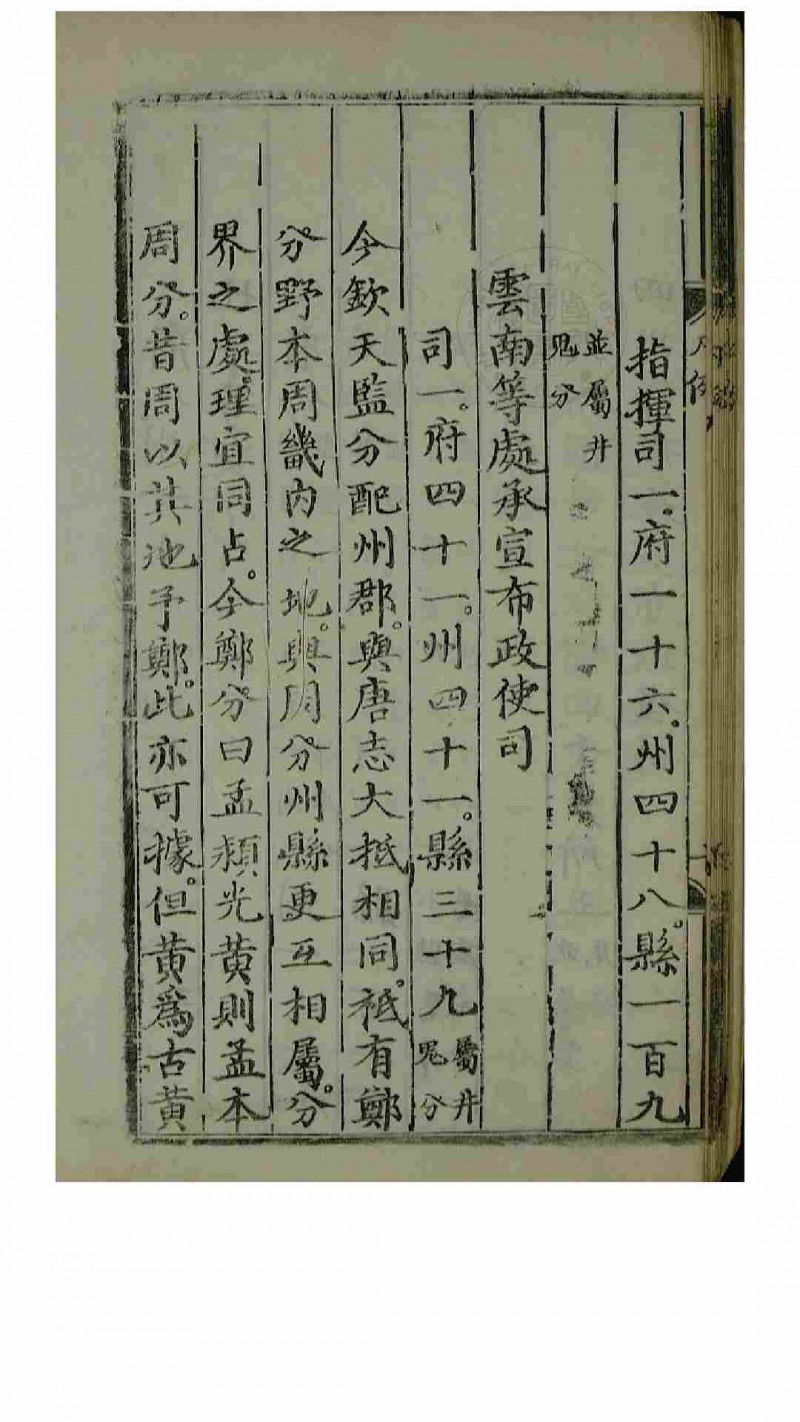 指揮司一。府一十六。州四十八。縣一百九
並屬井
鬼分
雲南等處承宣布政使司
司一。府四十一。州四十一。縣三十九屬井鬼分
今欽天監分配州郡。與唐志大抵相同。秪有鄭
分野本周畿内之地。與周分州縣更互相屬。分
界之處。理宜同占。今鄭分曰孟潁光黄則孟本
周分。昔周以其地予鄭。此亦可據。但黄爲古黄